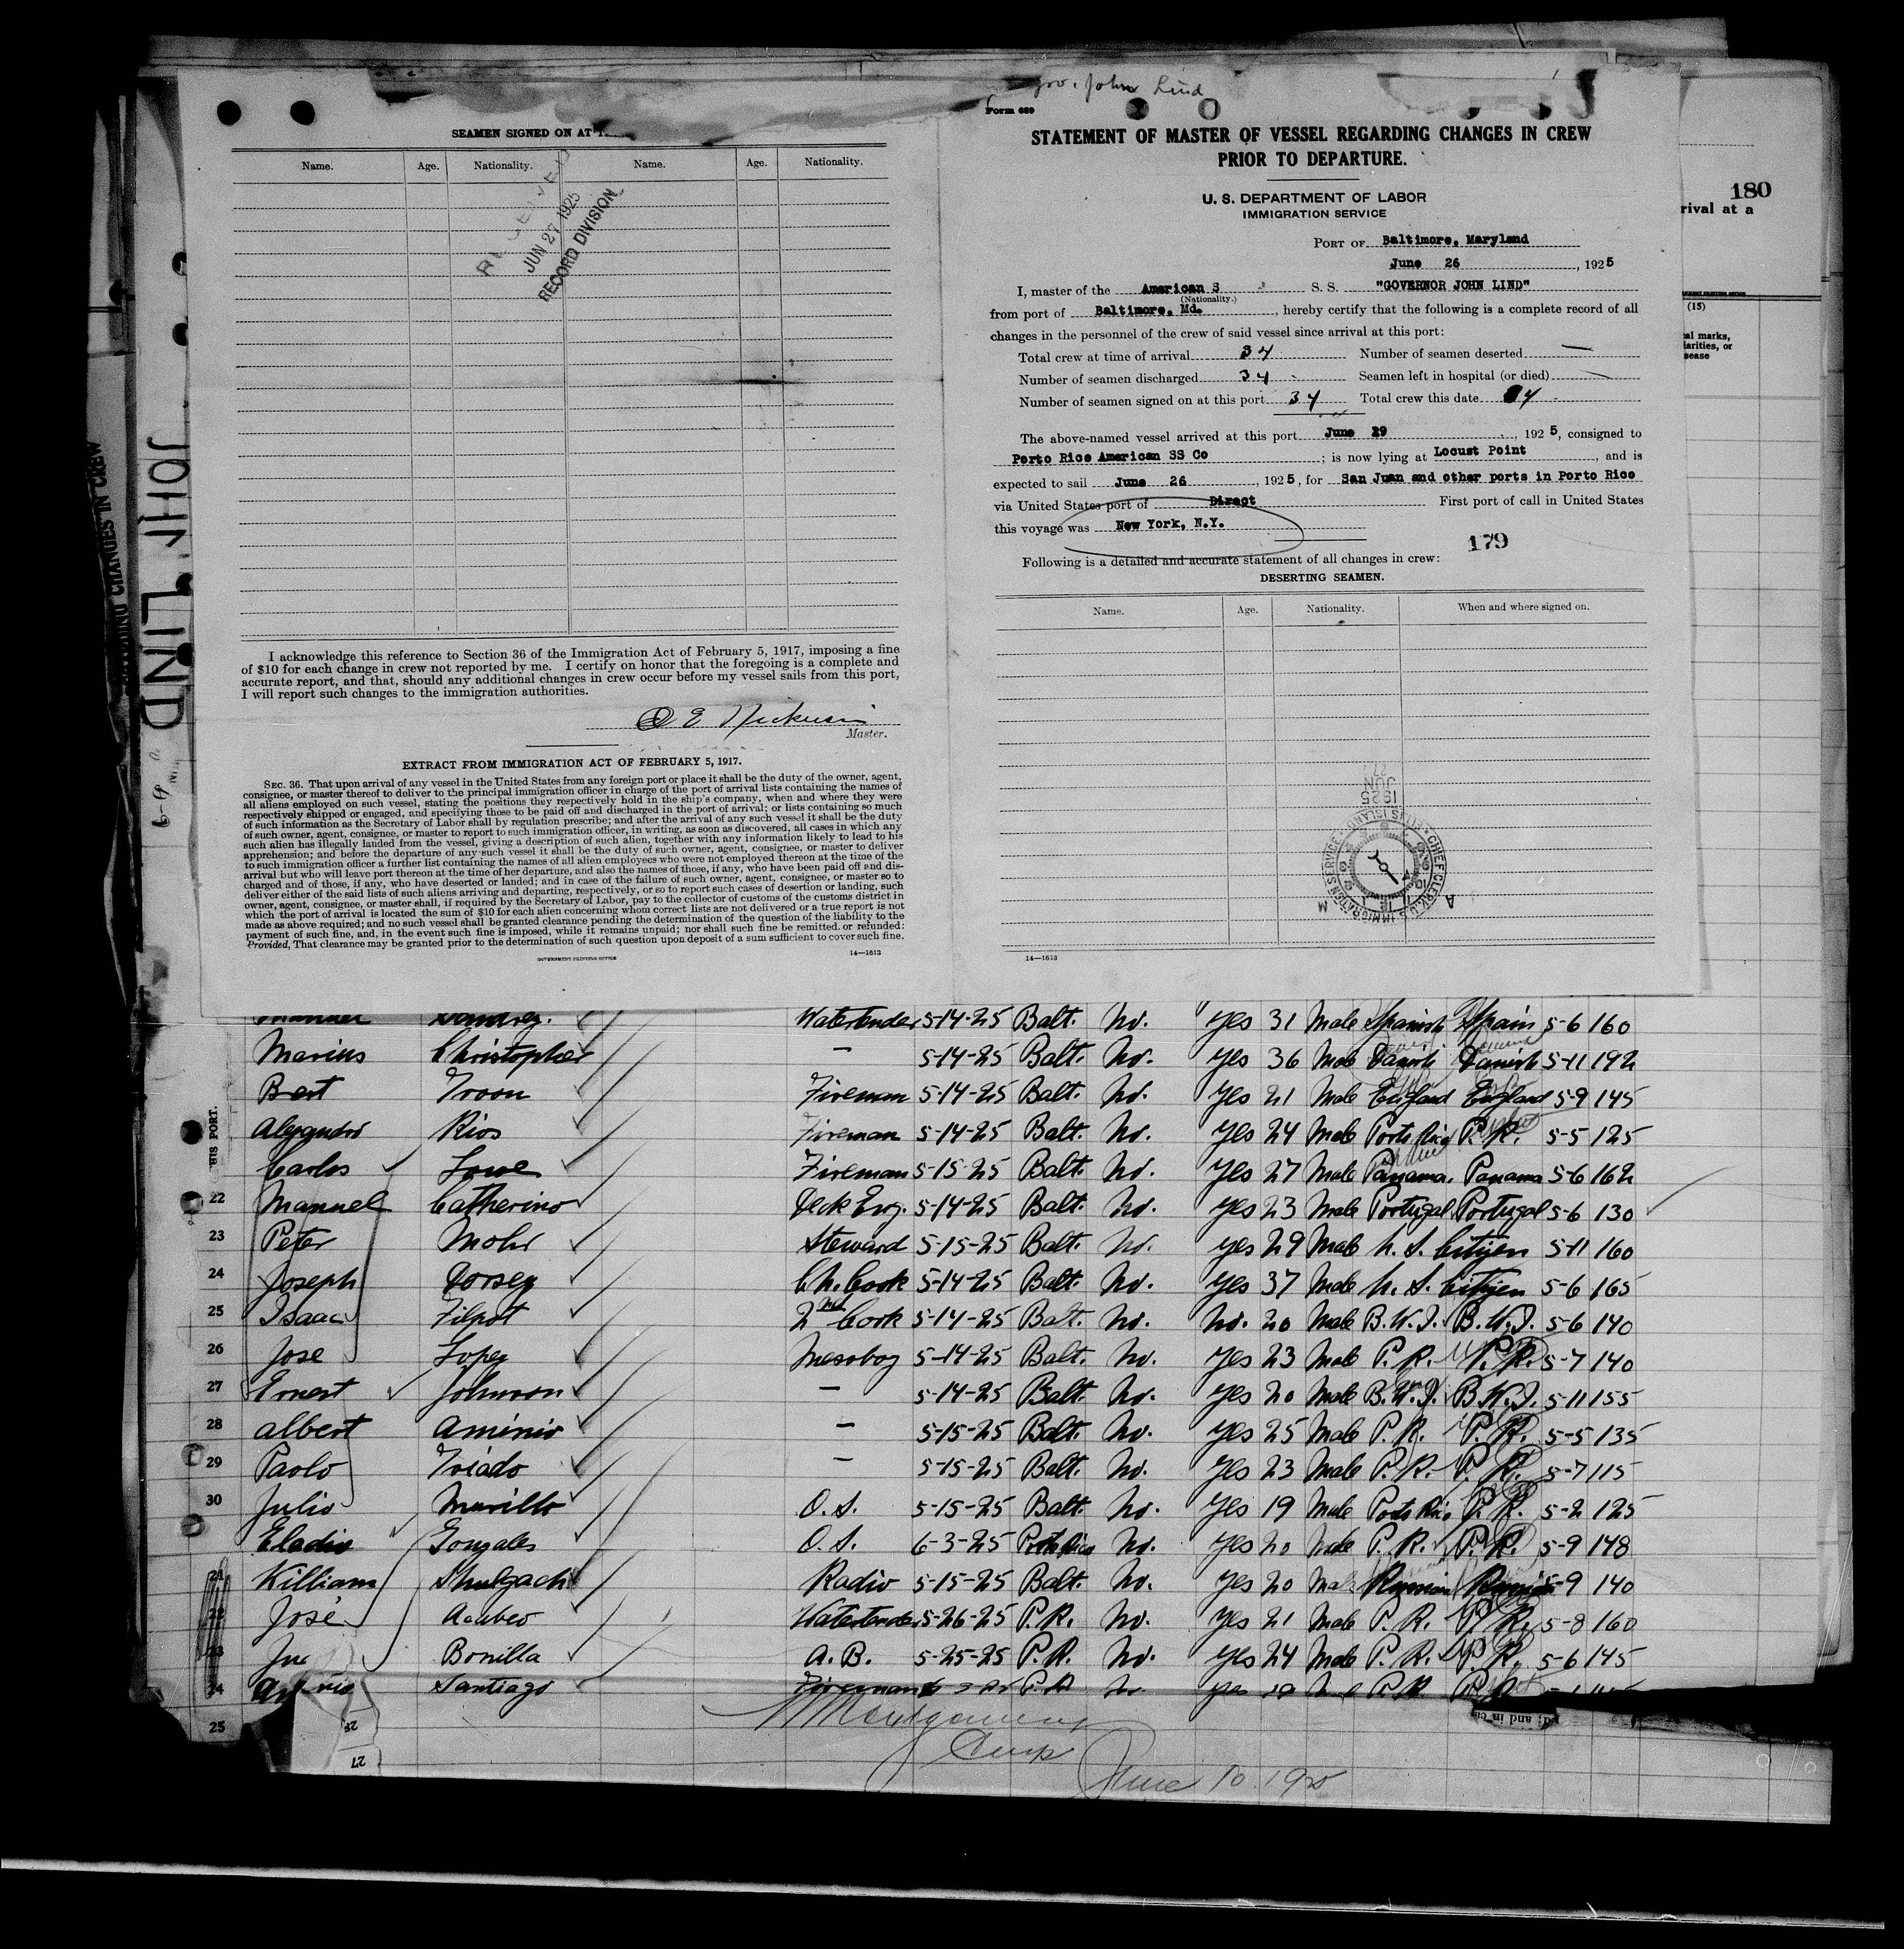 Gov. John Lind
SEAMEN SIGNED ON AT
Name. Age. Nationality. Name. Age. Nationality.
RECEIVED
JUN 27 1925
RECORD DIVISION
I acknowledge this reference to Section 36 of the Immigration Act of February 5, 1917, imposing a fine
of $10 for each change in crew not reported by me. I certify on honor that the foregoing is a complete and
accurate report, and that, should any additional changes in crew occur before my vessel sails from this port,
I will report such changes to the immigration authorities.
Master.
EXTRACT FROM IMMIGRATION ACT OF FEBRUARY 5, 1917.
SEC. 36. That upon arrival of any vessel in the United States from any foreign port or place it shall be the duty of the owner, agent,
consignee, or master thereof to deliver to the principal immigration officer in charge of the port of arrival lists containing the names of
all aliens employed on such vessel, stating the positions they respectively hold in the ship's company, when and where they were
respectively shipped or engaged, and specifying those to be paid off and discharged in the port of arrival; or lists containing so much
of such information as the Secretary of Labor shall by regulation prescribe; and after the arrival of any such vessel it shall be the duty
of such owner, agent, consignee, or master to report to such immigration officer, in writing, as soon as discovered, all cases in which any
such alien has illegally landed from the vessel, giving a description of such alien, together with any information likely to lead to his
apprehension; and before the departure of any such vessel it shall be the duty of such owner, agent, consignee, or master to deliver
to such immigration officer a further list containing the names of all alien employees who were not employed thereon at the time of the
arrival but who will leave port thereon at the time of her departure, and also the names of those, if any, who have been paid off and dis-
charged and of those, if any, who have deserted or landed; and in case of the failure of such owner, agent, consignee, or master so to
deliver either of the said lists of such aliens arriving and departing, respectively, or so to report such cases of desertion or landing, such
owner, agent, consignee, or master shall, if required by the Secretary of Labor, pay to the collector of customs of the customs district in
which the port of arrival is located the sum of $10 for each alien concerning whom correct lists are not delivered or a true report is not
made as above required; and no such vessel shall be granted clearance pending the determination of the question of the liability to the
payment of such fine, and, in the event such fine is imposed, while it remains unpaid; nor shall such fine be remitted or refunded:
Provided, That clearance may be granted prior to the determination of such question upon deposit of a sum sufficient to cover such fine.
GOVERNMENT PRINTING OFFICE
14—1613
Form 689
STATEMENT OF MASTER OF VESSEL REGARDING CHANGES IN CREW
PRIOR TO DEPARTURE.
U. S. DEPARTMENT OF LABOR
IMMIGRATION SERVICE
PORT OF Baltimore, Maryland
June 26, 1925
I, master of the American S S. S. "GOVERNOR JOHN LIND"
(Nationality.)
from port of Baltimore, Md., hereby certify that the following is a complete record of all
changes in the personnel of the crew of said vessel since arrival at this port:
Total crew at time of arrival 34 Number of seamen deserted —
Number of seamen discharged 34 Seamen left in hospital (or died) —
Number of seamen signed on at this port 34 Total crew this date 34
The above-named vessel arrived at this port June 29, 1925, consigned to
Porto Rico American SS Co; is now lying at Locust Point, and is
expected to sail June 26, 1925, for San Juan and other ports in Porto Rico
via United States port of Direct First port of call in United States
this voyage was New York, N.Y.
179
Following is a detailed and accurate statement of all changes in crew:
DESERTING SEAMEN.
Name. Age. Nationality. When and where signed on.
1925
JUN
27
CHIEF CLERK U. S. IMMIGRATION SERVICE ELLIS ISLAND
14—1613
180
rival at a
(15)
al marks,
larities, or
sease
CHANGES IN CREW
JOHN LIND
THIS PORT.
Watertender 5-14-25 Balt. No. Yes 31 Male Spanish Spain 5-6 160
Marius Christopher — 5-14-25 Balt. No. Yes 36 Male Danish Danish 5-11 192
Bert Troon Fireman 5-14-25 Balt. No. Yes 21 Male England England 5-9 145
Alejandro Rios Fireman 5-14-25 Balt. No. Yes 24 Male Porto Rico P.R. 5-5 125
Carlos Lowe Fireman 5-15-25 Balt. No. Yes 27 Male Panama. Panama 5-6 162
22 Manuel Catherino Deck Eng. 5-14-25 Balt. No. Yes 23 Male Portugal Portugal 5-6 130
23 Peter Mohr Steward 5-15-25 Balt. No. Yes 29 Male U. S. Citizen 5-11 160
24 Joseph Dorsey Ch. Cook 5-14-25 Balt. No. Yes 37 Male U. S. Citizen 5-6 165
25 Isaac Filpot 2nd Cook 5-14-25 Balt. No. No. 20 Male B.W.I. B.W.I. 5-6 140
26 Jose Lopez Messboy 5-14-25 Balt. No. Yes 23 Male P. R. P. R. 5-7 140
27 Ernest Johnson — 5-14-25 Balt. No. Yes 20 Male B.W.I. B.W.I. 5-11 155
28 Albert Aminio — 5-15-25 Balt. No. Yes 25 Male P. R. P. R. 5-5 135
29 Paolo Triado — 5-15-25 Balt. No. Yes 23 Male P. R. P. R. 5-7 115
30 Julio Murillo O. S. 5-15-25 Balt. No. Yes 19 Male Porto Rico P. R. 5-2 125
Eladio Gonzales O. S. 6-3-25 Porto Rico No. Yes 20 Male P. R. P. R. 5-9 148
21 William Shulgach Radio 5-15-25 Balt. No. Yes 20 Male Russian Russian 5-9 140
22 José Acabeo Watertender 5-26-25 P. R. No. Yes 21 Male P. R. P. R. 5-8 160
23 Bonilla A. B. 5-25-25 P. R. No. Yes 24 Male P. R. P. R. 5-6 145
24 Santiago Fireman P. R.
25
Montgomery
June 10 1925
28
27